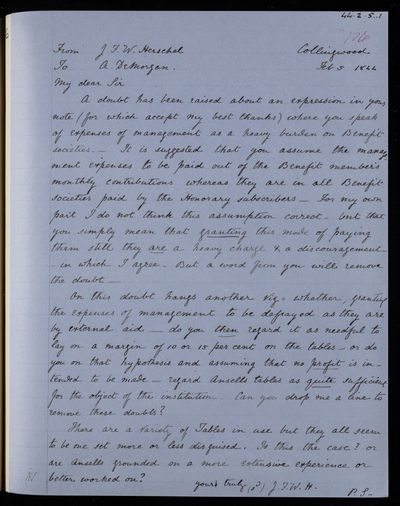 44-2-5.1
From J.F.W. Herschel Collingwood
To A. DeMorgan. Feb 5 1844
My dear Sir
A doubt has been raised about an expression in your
note (for which accept my best thanks) where you speak
of expenses of management as a heavy burden on Benefit
societies. — It is suggested that you assume the manage
ment expenses to be paid out of the Benefit members
monthly contributions whereas they are in all Benefit
societies paid by the Honorary subscribers — For my own
part I do not think this assumption correct — but that
you simply mean that granting this mode of paying
them still they are a heavy charge & a discouragement —
– in which I agree. But a word from you will remove
the doubt —
On this doubt hangs another viz: whether, granting
the expenses of management to be defrayed as they are
by external aid — do you then regard it as needful to
lay on a margin of 10 or 15 per cent on the tables — or do
you on that hypothesis and assuming that no profit is in-
tended to be made — regard Ansells tables as quite sufficient
for the object of the institution. Can you drop me a line to
remove these doubts?
There are a variety of Tables in use but they all seem
to be one set more or less disguised. Is this the case? or
are Ansells grounded on a more extensive experience or
better worked on?
yours truly (?) J.F.W.H.
P.S—